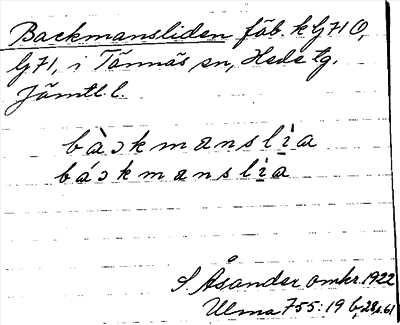 Backmansliden fäb. k Lj 71 O,
Lj 71, i Tännäs sn, Hede tg.
Jämtl. l.
bàɔkmanslì̲a
báɔkmanslì̲a
S. Åsander omkr. 1922
Ulma 755:19 b, 28 s. 61